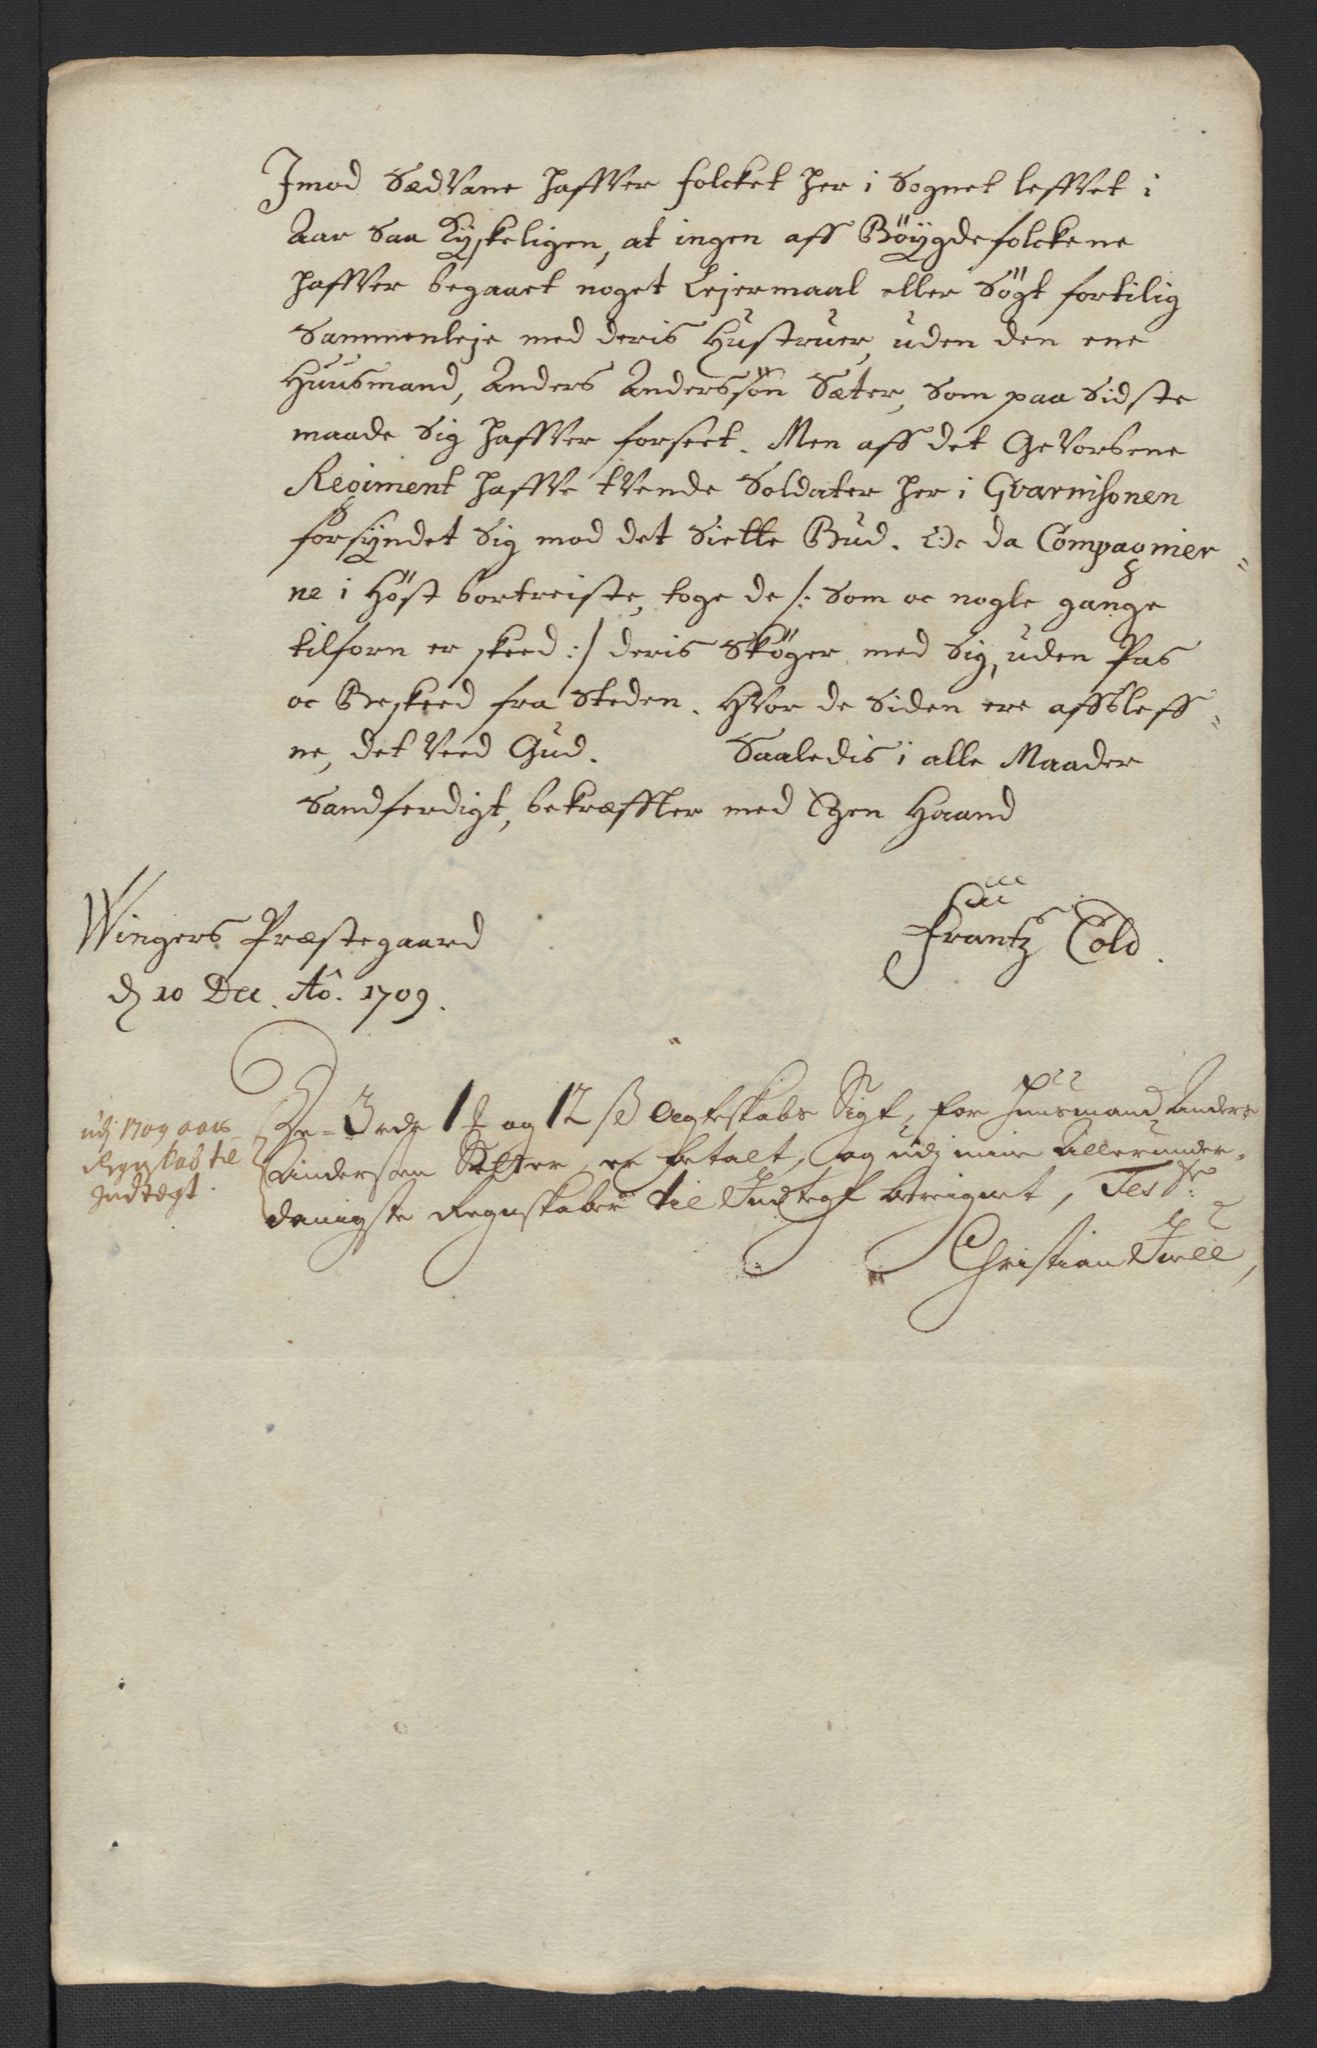 Imod Sædvane haffver folcket her i Sognet leffvet i
Aar saa Kyskeligen, at ingen aff Böÿgdefolckene
haffver begaaet noget Lejermaal eller Sögt fortilig
Sammenleje med deris Hustruer, uden den ene
Huusmand, Anders Anderssön Sæter, som paa Sidste
maade Sig haffver forseet. Men aff det Gevorbene
Regiment haffve tvende Soldater her i Gvarnisonen
forsyndet Sig mod det Siette Bud. Oc da Compagnier-
ne i Höst bortreiste, toge de /: som oc nogle gange
tilforn er skeed :/ deris Sköger med Sig, uden Pas
oc Beskeed fra Steden. Hvor de Siden ere affbleff-
ne, det veed Gud. Saaledis i alle Maader
Sandferdigt, bekræffter med Egen Haand
Frantz Cold.
Wingers Præstegaard
d 10 Dec. Ao. 1709.
udj 1709 aars
Regnskab til
Indtægt.
1 og 12 ß Egteskabs Sigt, for huusmand Anders
Andersen Setter, er betalt, og udj mine Allerunder-
danigste Regnskaber til Indtegt beregnet, Test:
Christian